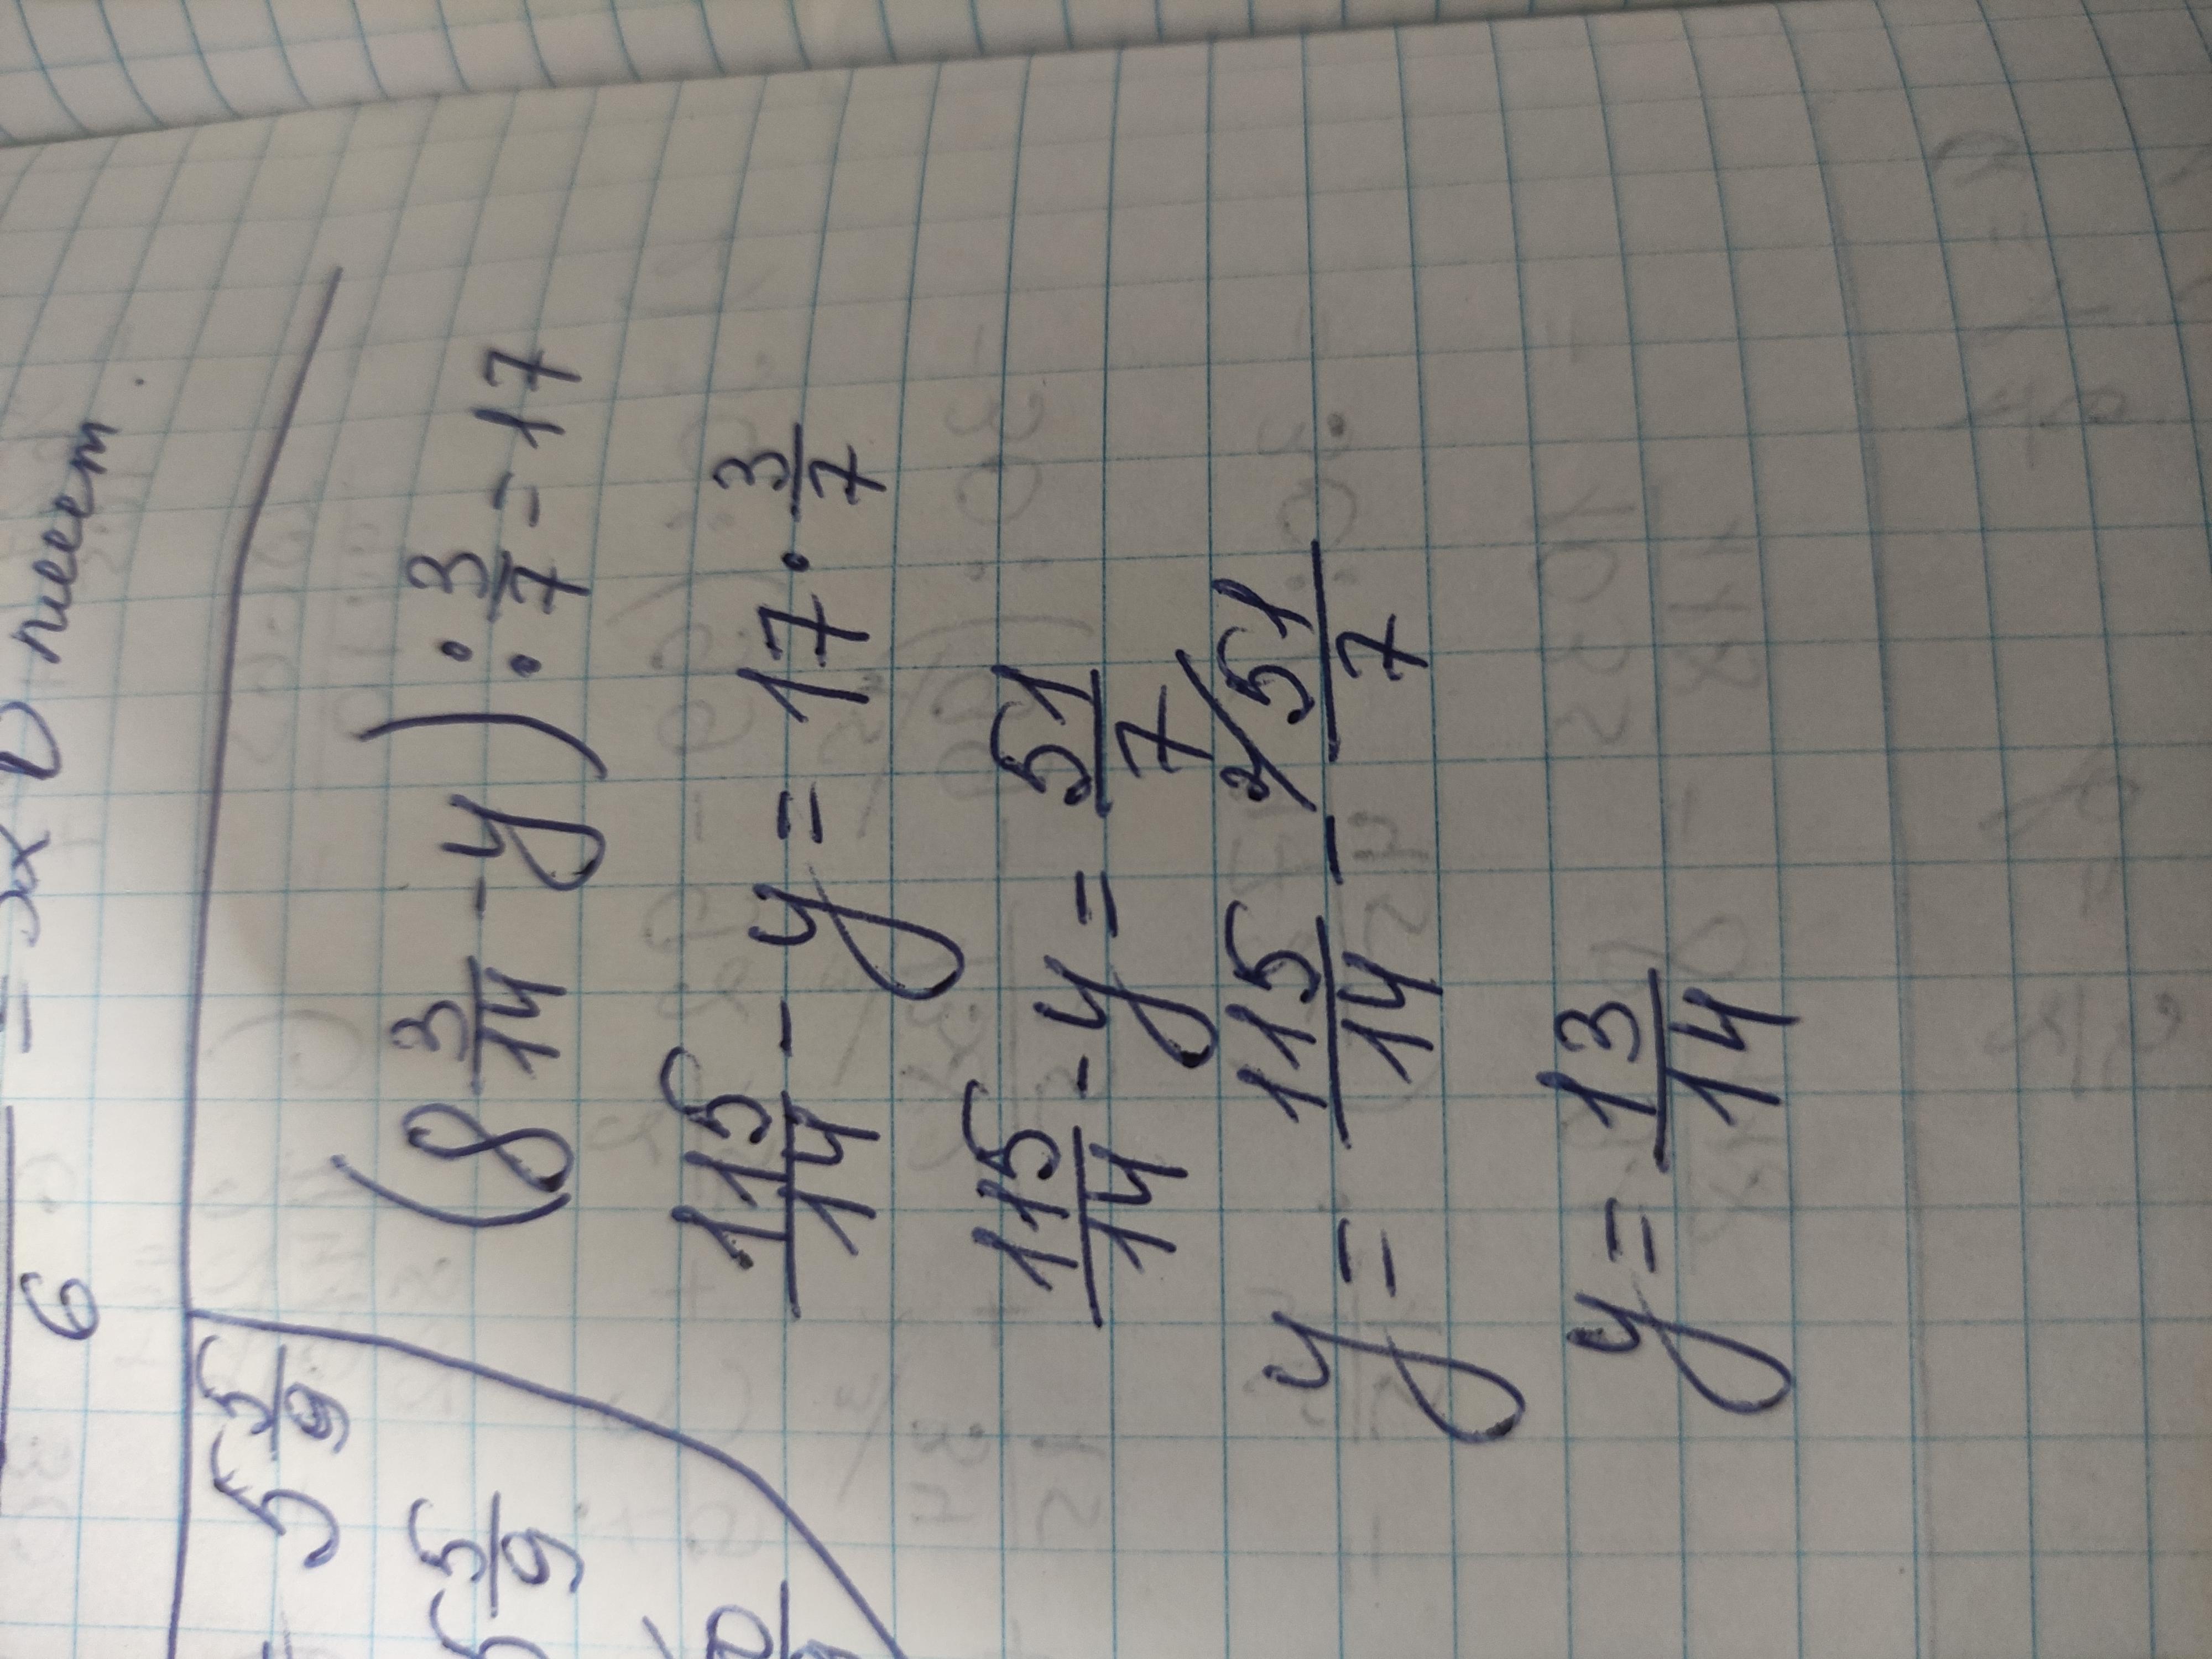 6
5 5/9
5 5/9
(8 3/14 - y) : 3/7 = 17
115/14 - y = 17 · 3/7
115/14 - y = 51/7
y = 115/14 - 2/ 51/7
y = 13/14